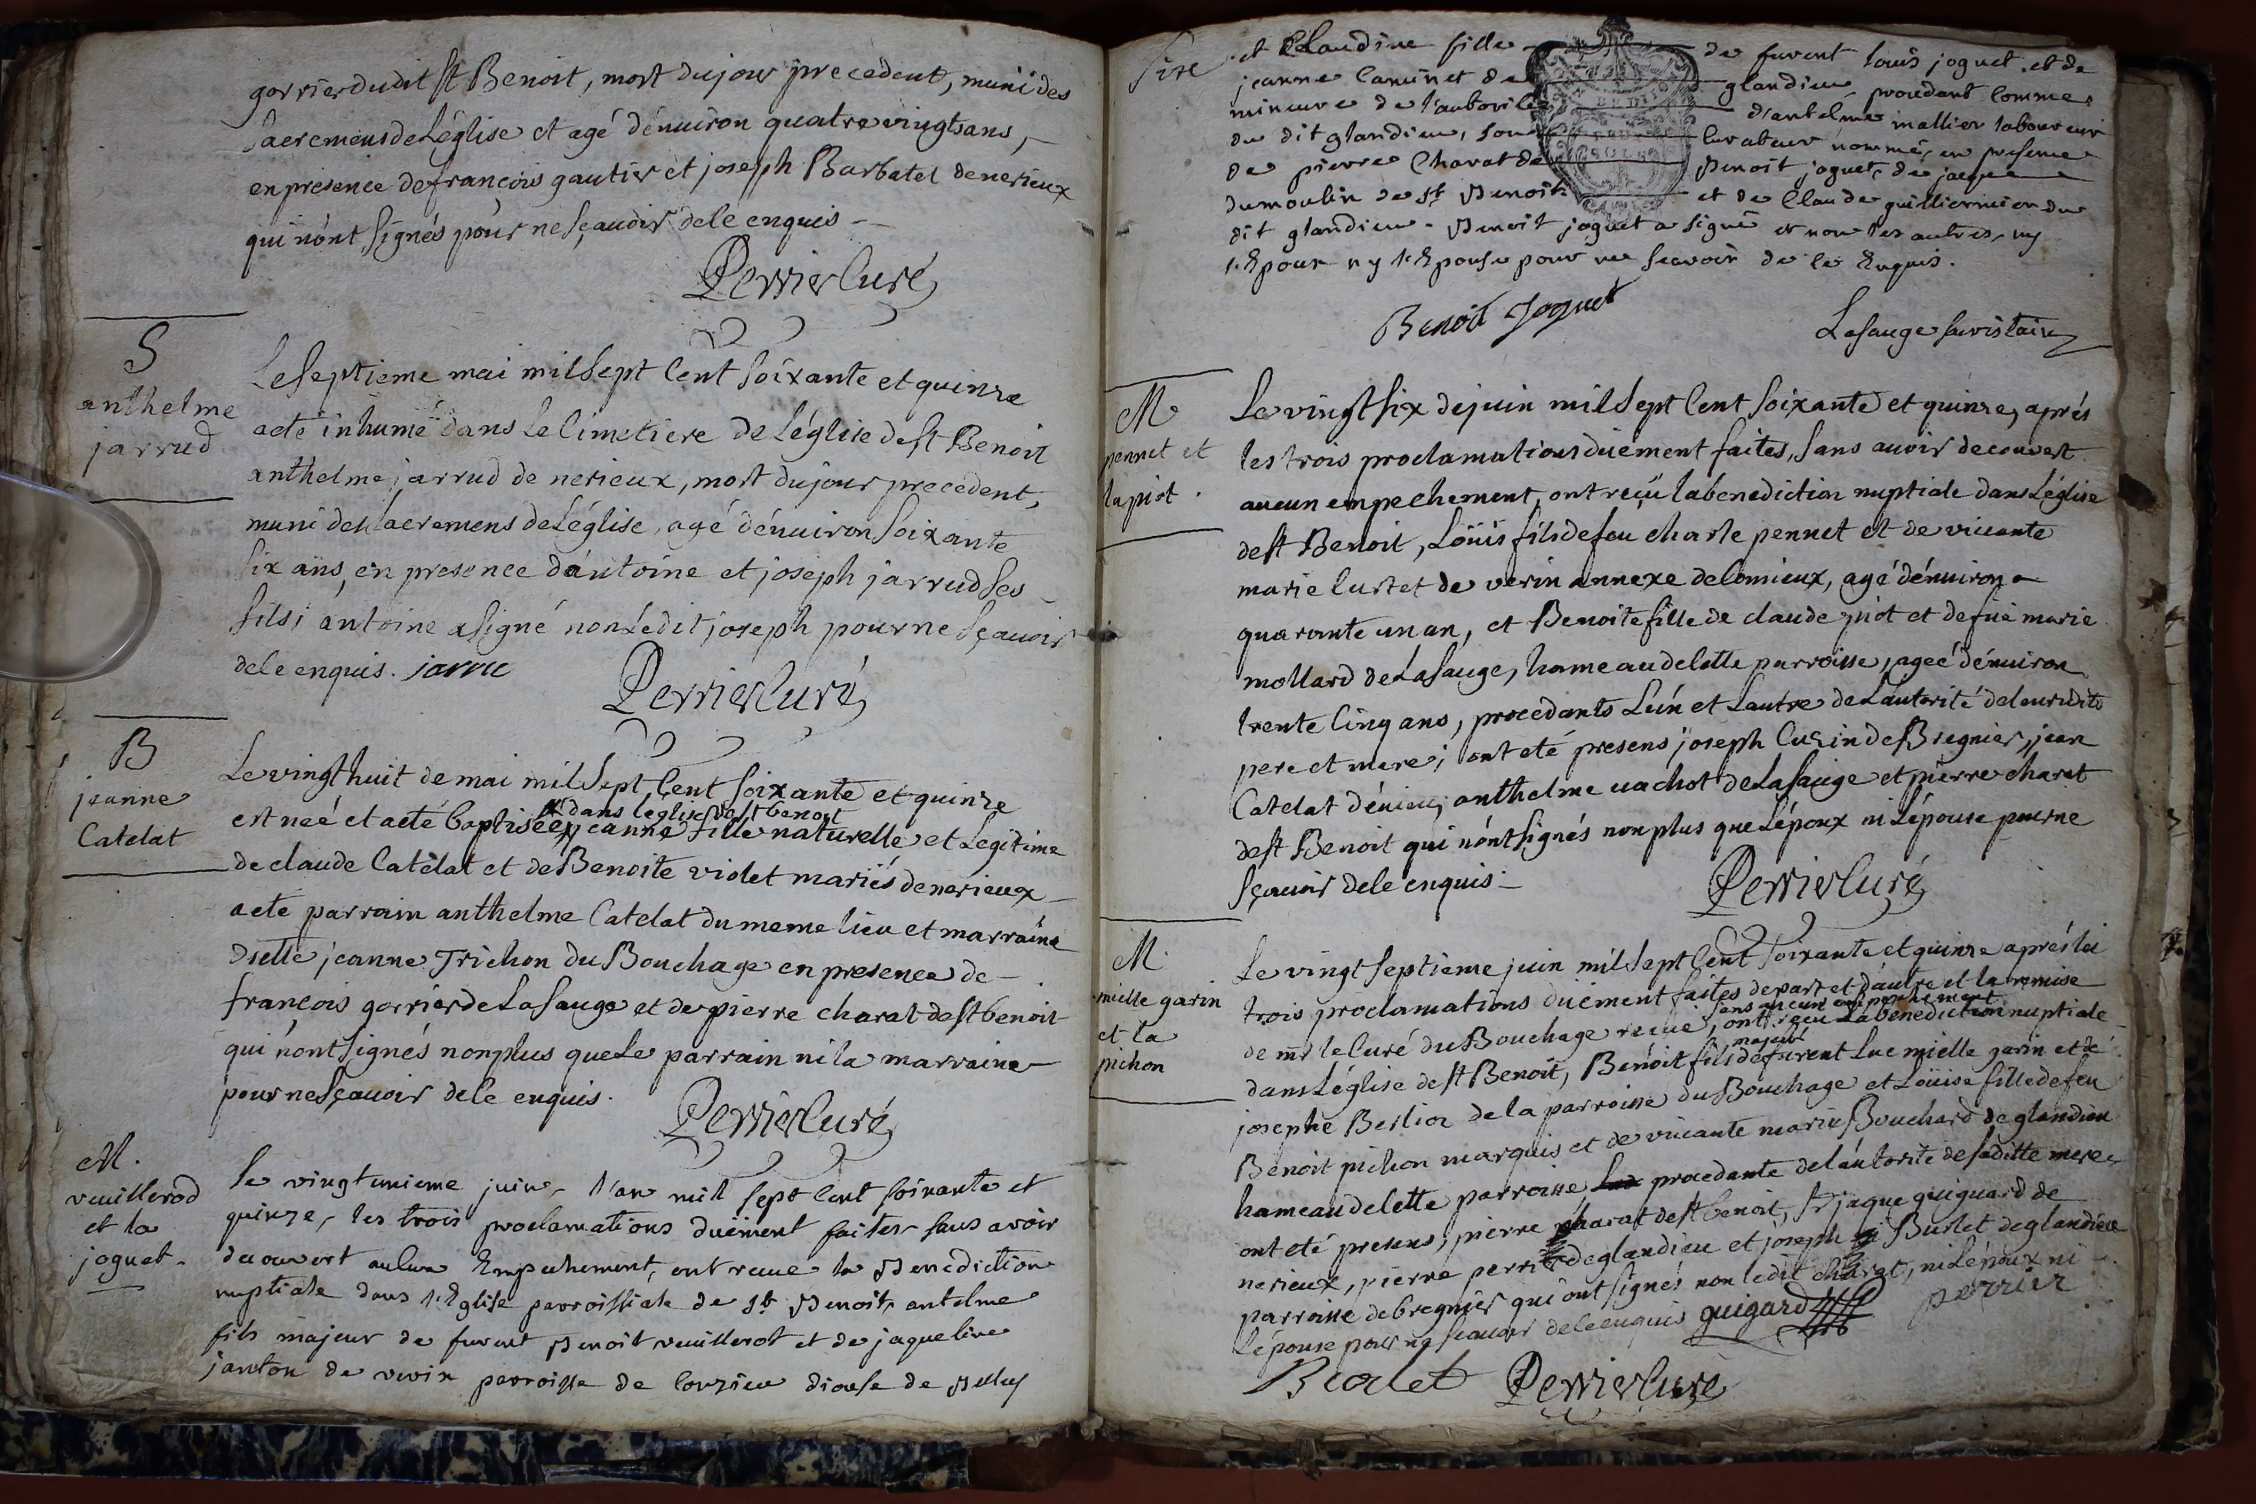 gorrier dudit st Benoit, mort du jour precedent, muni des
sacremens de Léglise et agé dénuiron quatre vingts ans,
en présence de francois gautier et joseph Barbatet de nerieux
qui n'ont signés pour ne sçavoir de le enquis
Perrier Curé
S
anthelme
jarrud
Le septieme mai mil sept Cent soixante et quinze
a eté inhumé dans Le Cimetiere de Léglise de st Benoit
anthelme jarrud de nerieux, mort du jour precedent,
muni des sacremens de Léglise, agé dénuiron soixante
six ans, en presence d'antoine et joseph jarrud ses
fils; antoine a signé non Ledit joseph pour ne sçavoir
de le enquis. jarru
Perrier Curé
B
jeanne
Catelat
Le vingt huit de mai mil sept Cent soixante et quinze
dans leglise de st benoit
est neé et a eté baptisée jeanne fille naturelle et Legitime
de claude Catelat et de Benoite violet mariés de nerieux
a eté parrain anthelme Catelat du meme lieu et marraine
dsette jeanne Trichon du Bouchage en presence de
françois gorrier de La sauge et de pierre charat de st benoit
qui n'ont signés non plus que Le parrain ni la marraine
pour ne sçavoir de le enquis.
Perrier Curé
M.
veuillerod
et la
joguet.
Le vingt unieme juin, l'an mil sept Cent soixante et
quinze, les trois proclamations duëment faites sans avoir
decouvert aulcun Empechement, ont reçue la Benediction
nuptiale dans l'Eglise parroissiale de st Benoit, antelme
fils majeur de furent Benoit veuillerot et de jaqueline
janton de verin parroisse de diouse de Belley
et Claudine fille de furent Louis joguet et de
jeanne de glandieu, procedant comme
mineure de l'authorité d'antelme mallier laboureur
du dit glandieu, son curateur nommé, en presence
de pierre Charat de Benoit joguet, de jacque
dumoulin de st Benoit et de Claude guilliermier du
dit glandieu. Benoit joguet a signé et non les autres, ny
l'Epoux ny l'Epouse pour ne scavoir de le Enquis.
Benoit Joguet
Lasauge
M
pennet et
la piot.
Le vingt six de juin mil sept Cent soixante et quinze, aprés
les trois proclamations duëment faites, sans avoir decouvert
aucun empechement, ont reçü la benediction nuptiale dans Léglise
de st Benoit, Loüis fils de feu charle pennet et de vivante
marie Curtet de verin annexe de Lomieux, agé dénuiron
quarante un an, et Benoite fille de claude piot et de fuë marie
mollard de La sauge, hameau de Cette parroisse, ageé dénuiron
trente Cinq ans, procedants L'un et L'autre de L'autorité de leursdits
pere et mere; ont eté presens joseph Cuzin de Bregnier, jean
Catelat d'énieu, anthelme vachot de La sauge et pierre charat
de st Benoit qui n'ont signés non plus que L'époux ni L'épouse pour ne
sçavoir de le enquis.
Perrier Curé
M.
mielle garin
et la
pichon
Le vingt septieme juin mil sept Cent soixante et quinze aprés les
trois proclamations duëment faites de part et d'autre et la remise
sans aucun empechement
de mr le Curé du Bouchage recue, ont reçu La benediction nuptiale
majeur
dans Léglise de st Benoit, Benoit fils de furent Luc mielle garin et de
josephe Berlioz de la parroisse du Bouchage et Loüise fille de feu
Benoit pichon marquis et de vivante marie Bouchard de glandieu
hameau de Cette parroisse procedante de l'autorité de saditte mere
ont eté presens, pierre charat de st benoit, sr jaque guiguard de
nerieux, pierre perrier de glandieu et joseph Burlet de glandieu
parroisse de bregnier qui ont signés non ledit charat, ni L'époux ni
L'épouse pour ne scavoir de le enquis guigard perrier
Burlet Perrier Curé